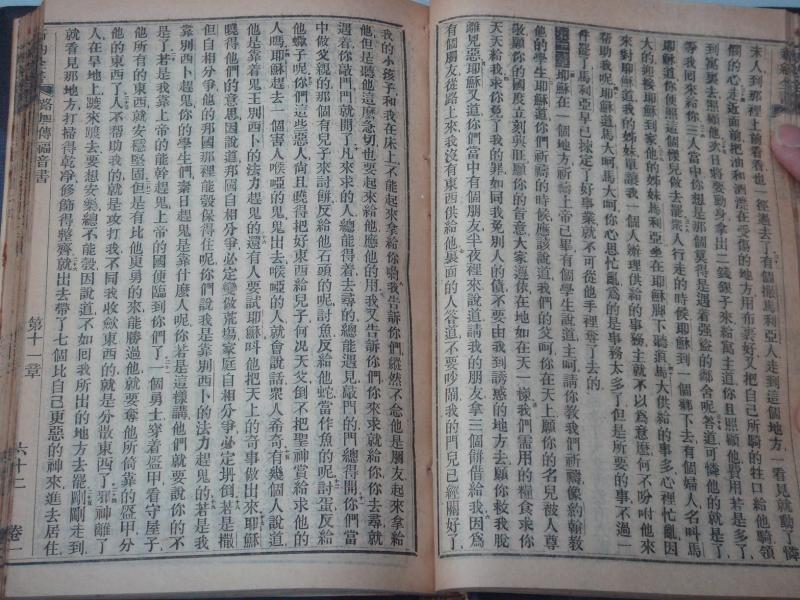 來人到那裡上前看看也一徑過去了有個撒馬利亞人走到這個地方一看見就動了憐
憫的心走近面前把油和酒澆在受傷的地方用布裹好又把自己所騎的牲口給他騎領
到寓裏去照顧他次日將要動身拿出二錢銀子來給寓主道你且照顧他費用若是多了
等我回來給你三人當中你想是那個莫得是遇着强盜的鄰舍呢答道可憐他的就是了
耶穌道你便照這個樣兒做去罷衆人行走的時候耶穌到一個鄉下去有個婦人名叫馬
大的迎接耶穌到家他的姊妹馬利亞坐在耶穌脚下聽道馬大供給的事多心裡忙亂因
來對耶穌道我的姊妹單讓我一個人辦理供給的事務主就不以爲意麽何不吩咐他來
幫助我呢耶穌道馬大呵馬大呵你心思忙亂爲的是事務太多了但是所要的事不過一
件罷了馬利亞早已揀定了好事業就不可從他手裡奪了去的
耶穌在一個地方祈禱上帝已畢有個學生說道主呵請你教我們祈禱像約翰教
他的學生耶穌道你們祈禱的時候應該說道我們的父呵你在天上願你的名兒被人尊
敬願你的國度立刻興旺願你的旨意大家遵依在地如在天一樣我們需用的糧食求你
天天給我求你免了我的罪如同我免別人的債不要由我到誘惑的地方去願你救我脫
離兇惡耶穌又道你們當中有個朋友半夜裡來說道請我的朋友拿三個餅借給我因爲
有個朋友從路上來我沒有東西供給他裏面的人答道不要吵鬧我的門兒已經關好了
我的小孩子和我在床上不能起來拿給你喲我告訴你們縱然不念他是朋友起來拿給
他但是聽他這麽急切也要起來給他應他的用我又告訴你們你來求就給你你去尋就
着你敲門門就開了凡來求的人總能得着去尋的總能遇見敲門的門總得開你們當
中做父親的那個有兒子來討餅反給他石頭的呢討魚反給他蛇當作魚的呢討蛋反給
他蠍子呢你們這些惡人尙且曉得把好東西給兒子何况天父倒不把聖神賞給求他的
人嗎耶穌趕去一個害人啞的鬼鬼出去啞的人就會說話衆人希奇有幾個人說道
他是靠着鬼王別西卜的法力趕鬼的還有人要試耶穌呌他把天上的奇事做出來耶穌
曉得他們的意思因說道那國自相分爭必定變做荒塲家庭自相分爭必定坍倒若是撒
但自相分爭他的那國那裡能彀保得住呢你們說我是靠別西卜的法力趕鬼的若是我
靠別西卜趕鬼你的學生們素日趕鬼是靠什麽人呢你若是這樣講他們就要說你的不
是了若是我靠上帝的能幹趕鬼上帝的國便臨到你們了一個勇士穿着盔甲看守屋子
他所有的東西就安穩堅固但是有比他更勇的來能勝過他就要奪他所倚靠的盔甲分
他的東西了人不帮助我的就是攻打我不同我收歛東西的就是分散東西了邪神離了
人在旱地上踱來踱去要想安樂總不能彀因說道不如囘我所出的地方去罷剛剛走到
就看見那地方打掃得乾凈修飾得整齊就出去帶了七個比自己更惡的神來進去居住
路加傳福音書
第十一章
六十二
卷一